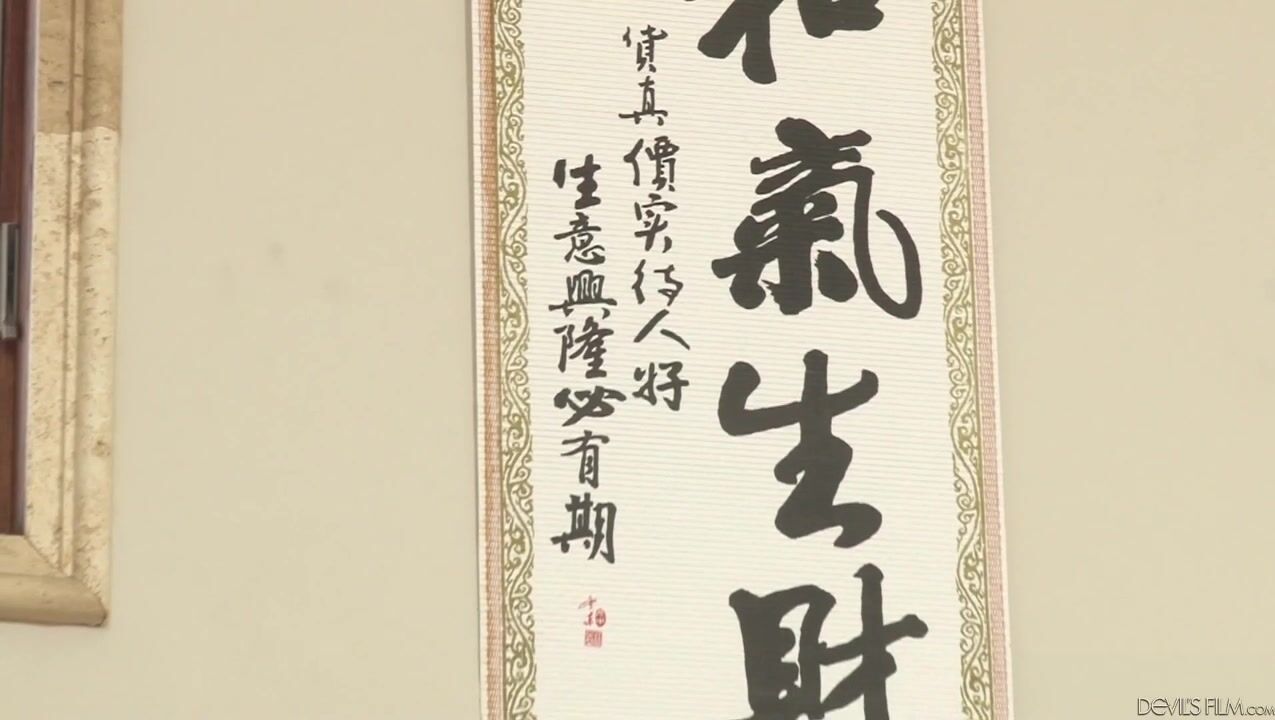 和氣生財
貨真價实待人好
生意興隆必有期
DEVIL'S FILM.COM